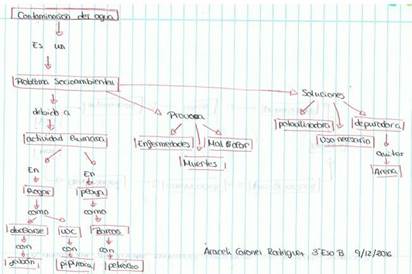 Contaminacion del agua
Es un
Problema Socioambiental
debido a
actividad humana
En
En
Hogar
playa
como
como
ducharse
WC
Barcos
con
con
con
jabón
petroleo
Provoca
Enfermedades
Mal olor
Muertes
Soluciones
potabilizadora
depuradora
Uso necesario
quitar
Arena
Araceli Coronel Rodriguez 3ºEso B 9/12/2016